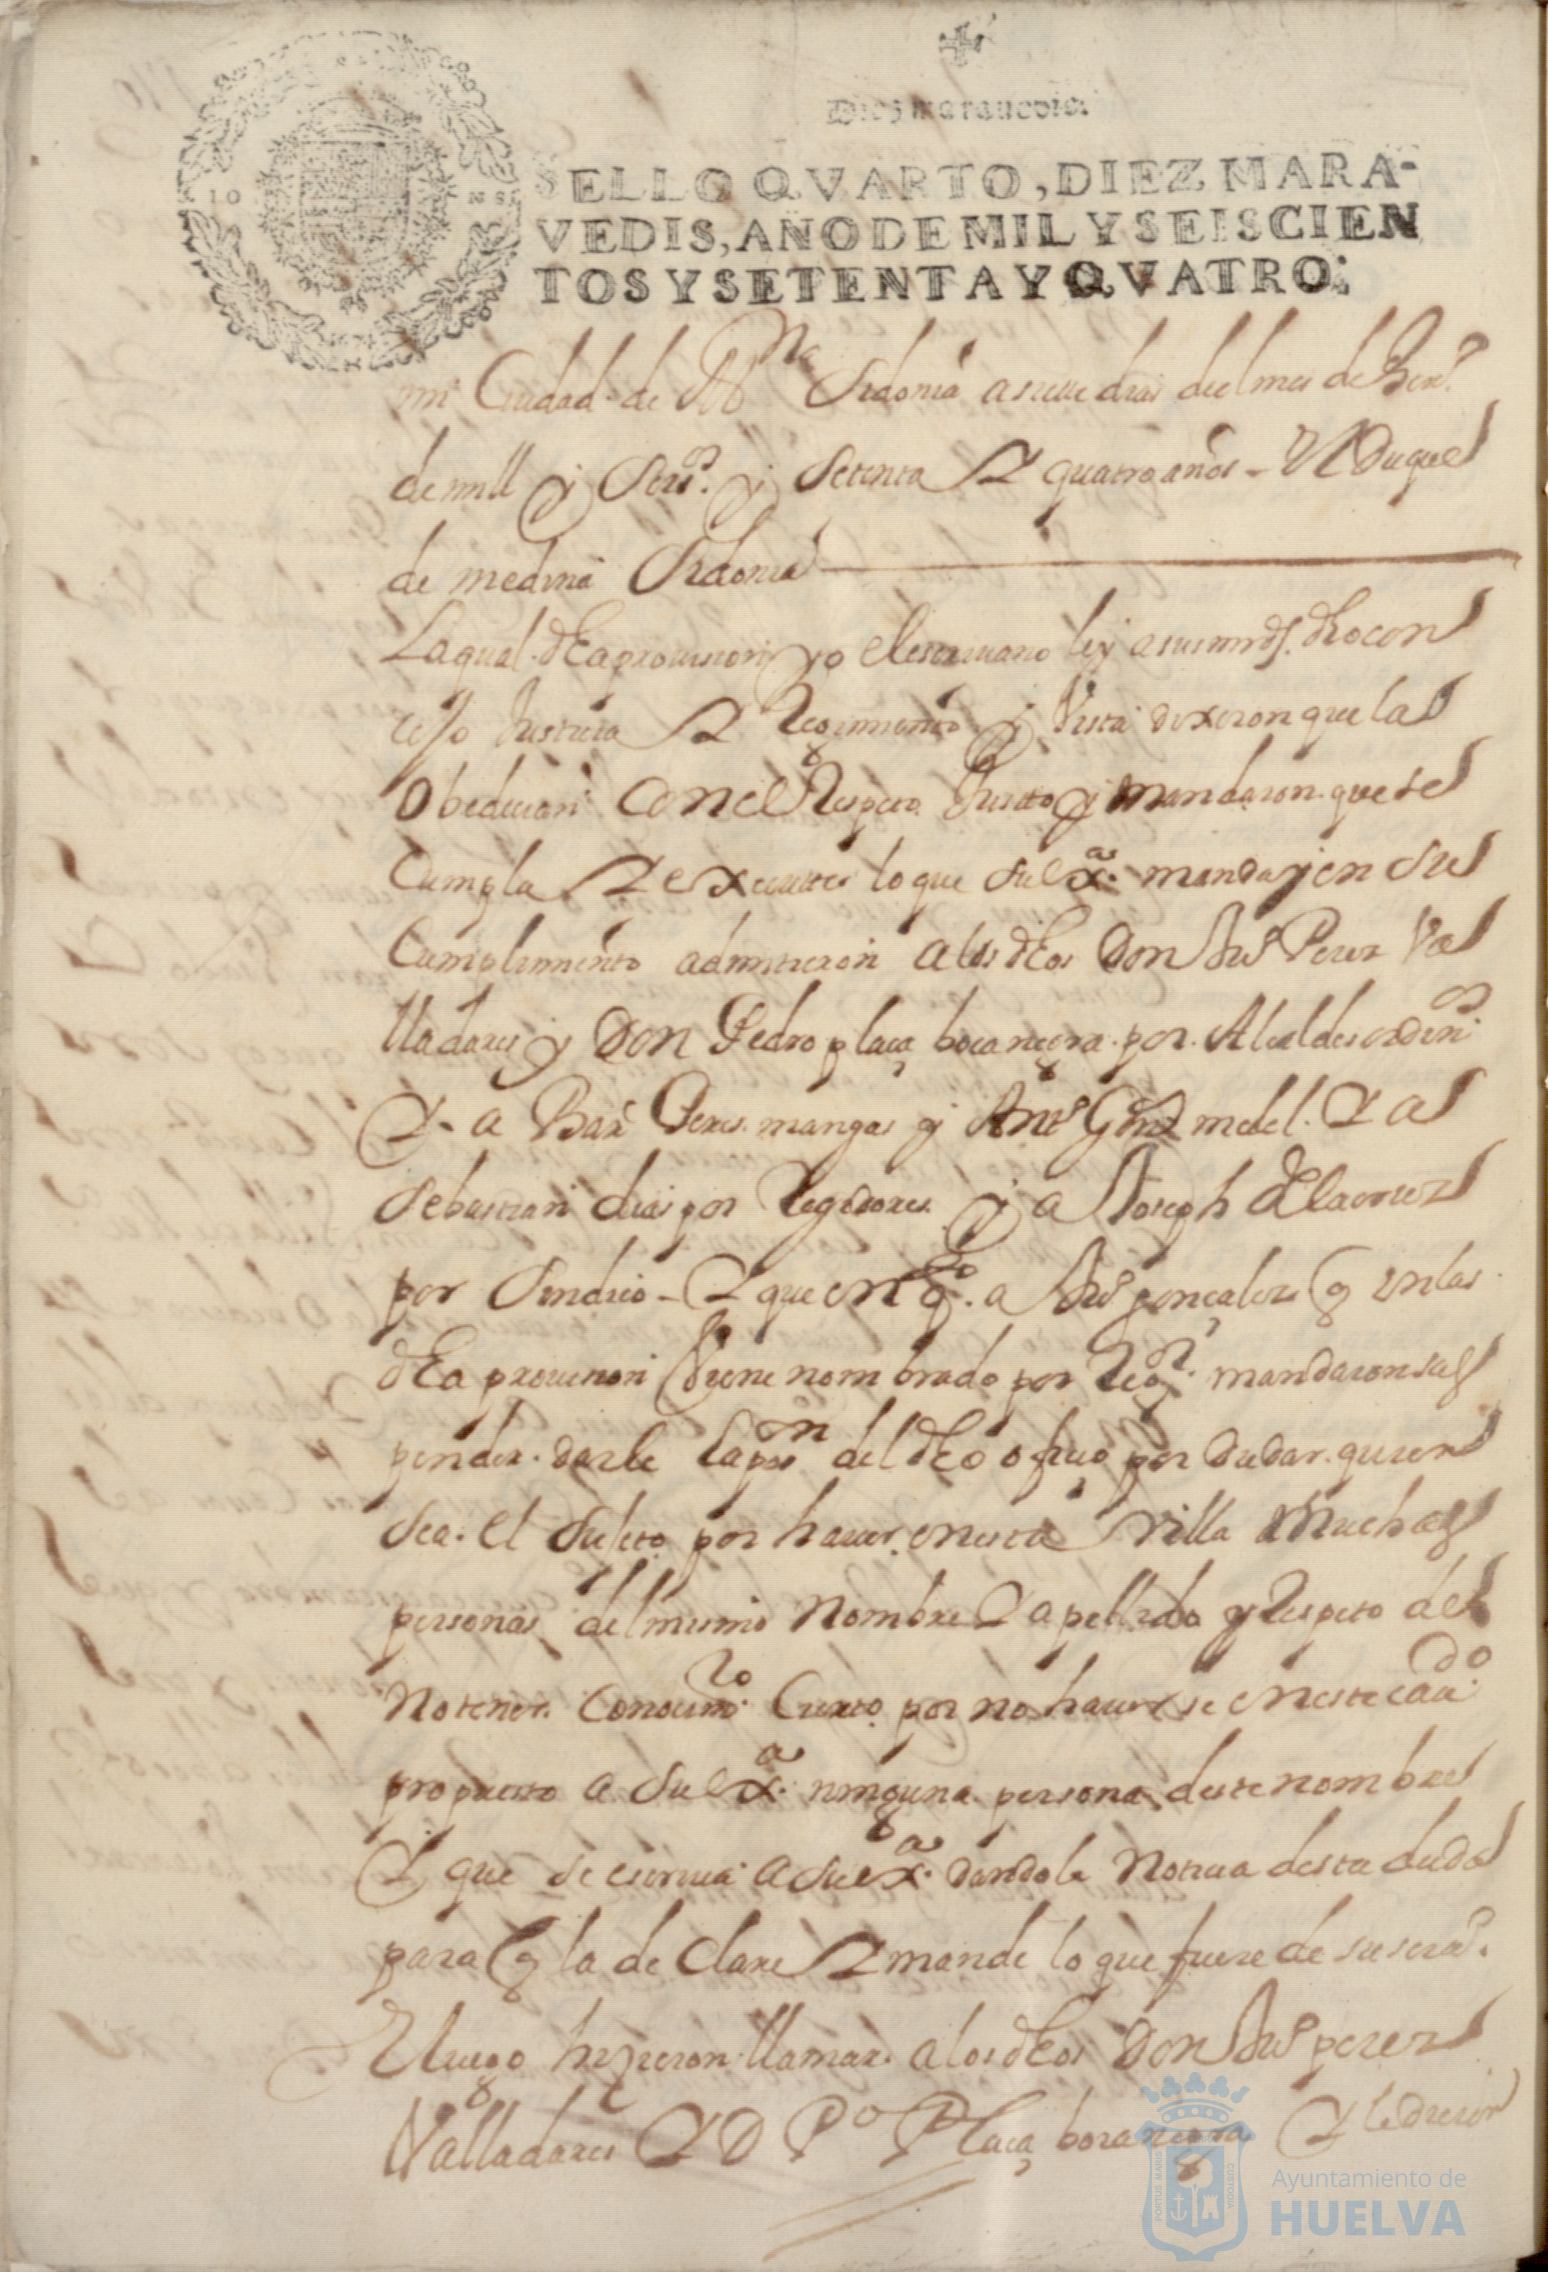 Diez maravedis.
SELLO QVARTO, DIEZ MARA-
VEDIS, AÑO DE MIL Y SEISCIEN
TOS Y SETENTA Y QVATRO.
10 MS
mi Ciudad de Mna Sidonia a siete dias del mes de Henº
de mill y Seisº. y Setenta Y quatro años - El Duque
de medina Sidonia
La qual dha provision yo el escrivano ley a sus mrds. dho con
cejo Justicia Y Regimiento y Vista dixeron que la
Obedecian con el Respeto Justto y mandaron que se
Cumpla Y executte lo que su exª. manda y en su
Cumplimiento admitieron a los dhos Don Juº Perez Va
lladares y Don Pedro plaça bocanegra por Alcaldes ordinº
Y a Bar Peres mangas y Antº Gonz medel Y a
Sebastian dias por Regidores y a Joseph de la cruz
por Sindico - Y que en qto. a Juº gonçales q en la
dha provision Viene nombrado por Regor. mandaron sus
pender darle la posn del dho ofiçio por dudar quien
sea el Sujeto por haver en esta Villa Muchas
personas del mismo Nombre Y apellido y Respeto de
No tener Conocimto. Cierto por no haverse en este cavdo
propuesto a su exª. ninguna persona deste nombre
Y que se escriva a su exª. dandole Noticia desta duda
para q la declare Y mande lo que fuere de su servº.
E luego hizieron llamar a los dhos Don Juº perez
Valladares Y D Pº Plaça bocanegra Y le dieron
Ayuntamiento de
HUELVA
PORTUS MARIS
CUSTODIA